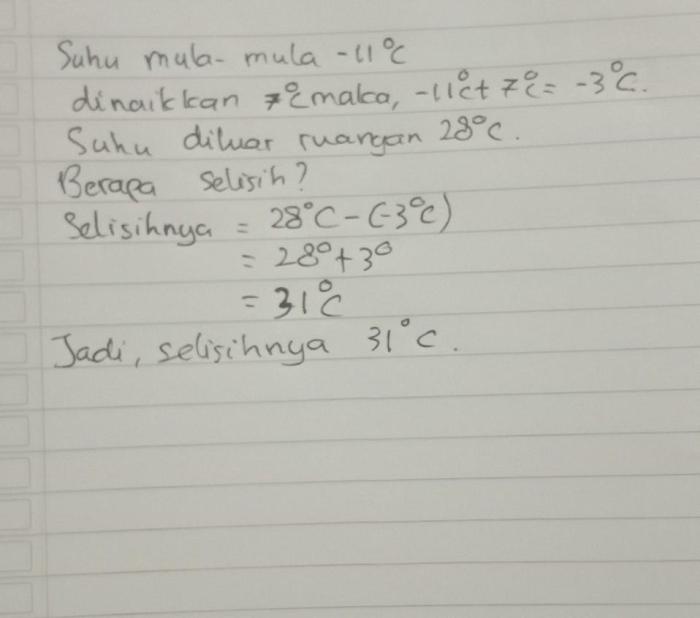 Suhu mula-mula -11°C
dinaikkan 7°C maka, -11°C + 7°C = -3°C.
Suhu diluar ruangan 28°C.
Berapa selisih?
Selisihnya = 28°C - (-3°C)
= 28° + 3°
= 31°C
Jadi, selisihnya 31°C.